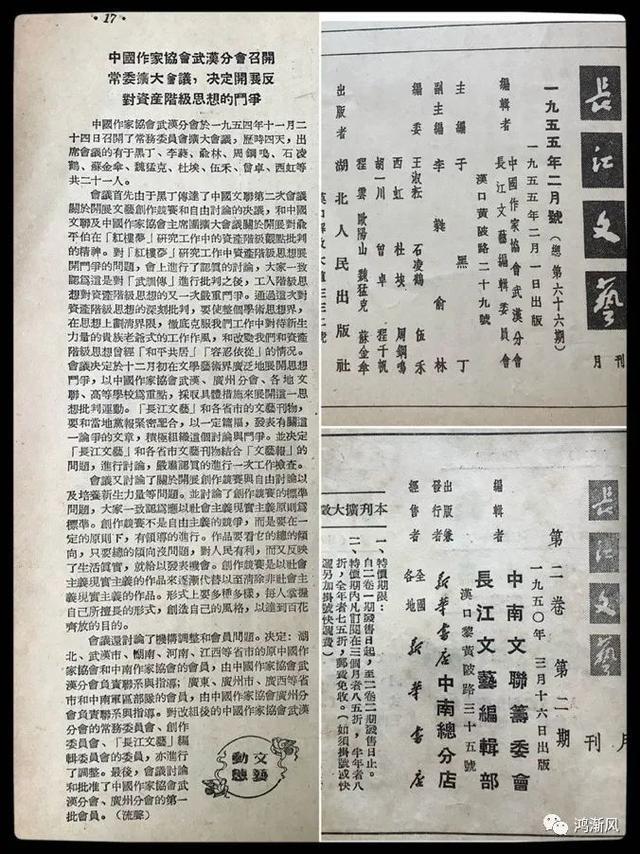 ·17·
中國作家協會武漢分會召開
常委擴大會議，决定開展反
對資産階級思想的鬥爭
中國作家協會武漢分會於一九五四年十一月二
十四日召開了常務委員會擴大會議，歷時四天，出
席會議的有于黑丁、李蕤、俞林、周鋼鳴、石凌
鶴、蘇金傘、魏猛克、杜埃、伍禾、曾卓、西虹等
共二十一人。
會議首先由于黑丁傳達了中國文聯第二次會議
關於開展文藝創作競賽和自由討論的决議，和中國
文聯及中國作家協會主席團擴大會議關於開展對俞
平伯在「紅樓夢」研究工作中的資產階級觀點批判
的精神。對「紅樓夢」研究工作中資產階級思想展
開鬥爭的問題，會上進行了認眞的討論，大家一致
認爲這是對「武訓傳」進行批判之後，工人階級思
想對資產階級思想的又一次嚴重鬥爭。通過這次對
資產階級思想的深刻批判，要使整個學術思想界，
在思想上劃清界限，徹底克服我們工作中對待新生
力量的貴族老爺式的工作作風，和改變我們和資產
階級思想曾經「和平共居」「容忍依從」的情况。
會議决定於十二月初在文學藝術界廣泛地展開思想
鬥爭，以中國作家協會武漢、廣州分會、各地文
聯、高等學校爲重點，採取具體措施來展開這一思
想批判運動。「長江文藝」和各省市的文藝刊物，
要和當地黨報緊密配合，以一定篇幅，發表有關這
一論爭的文章，積極組織這個討論與鬥爭。並决定
「長江文藝」和各省市文藝刊物結合「文藝報」的
問題，進行討論，嚴肅認眞的進行一次工作檢查。
會議又討論了關於開展創作競賽與自由討論以
及培養新生力量等問題。並討論了創作競賽的標準
問題，大家一致認爲應以社會主義現實主義原則爲
標準。創作競賽不是自由主義的競爭，而是要在一
定的原則下，有領導的進行。作品要看它的總的傾
向，只要總的傾向沒問題，對人民有利，而又反映
了生活眞實，就給以發表機會。創作競賽是以社會
主義現實主義的作品來逐漸代替以至清除非社會主
義現實主義的作品。形式上要多種多樣，每人掌握
自己所擅長的形式，創造自己的風格，以達到百花
齊放的目的。
會議還討論了機構調整和會員問題。决定：湖
北、武漢市、湖南、河南、江西等省市的原中國作
家協會和中南作家協會的會員，由中國作家協會武
漢分會負責聯系與指導；廣東、廣州市、廣西等省
市和中南軍區部隊的會員，由中國作家協會廣州分
會負責聯系與指導。對改組後的中國作家協會武漢
分會的常務委員會、創作
委員會、「長江文藝」編
輯委員會的委員，亦進行
了調整。最後，會議討論
和批准了中國作家協會武
漢分會、廣州分會的第一
批會員。（流聲）
文藝
動態
長江文藝
月刊
一九五五年二月號（總第六十六期）
一九五五年二月一日出版
編輯者 中國作家協會武漢分會
長江文藝編輯委員會
漢口黃陂路二十九號
主編 于黑丁
副主編 李蕤 俞林
編委 王淑耘 石凌鶴 伍禾
西虹 杜埃 周鋼鳴
胡一川 曾卓 程千帆
程雲 歐陽山 魏猛克 蘇金傘
出版者 湖北人民出版社
長江文藝
月刊
第二卷 第二期
一九五〇年 三月十六日出版
編輯者 中南文聯籌委會
長江文藝編輯部
漢口黎黃陂路三十五號
出版兼發行者 新華書店中南總分店
經售者 全國各地 新華書店
本刊擴大
一、特價期限：
自二卷一期發售日起，至二卷二期發售日止。
二、特價期内凡訂閱在三個月者八五折，半年者八
折，全年者七五折，郵費免收。（如須掛號或快
遞另加掛號快遞費）
鸿渐风